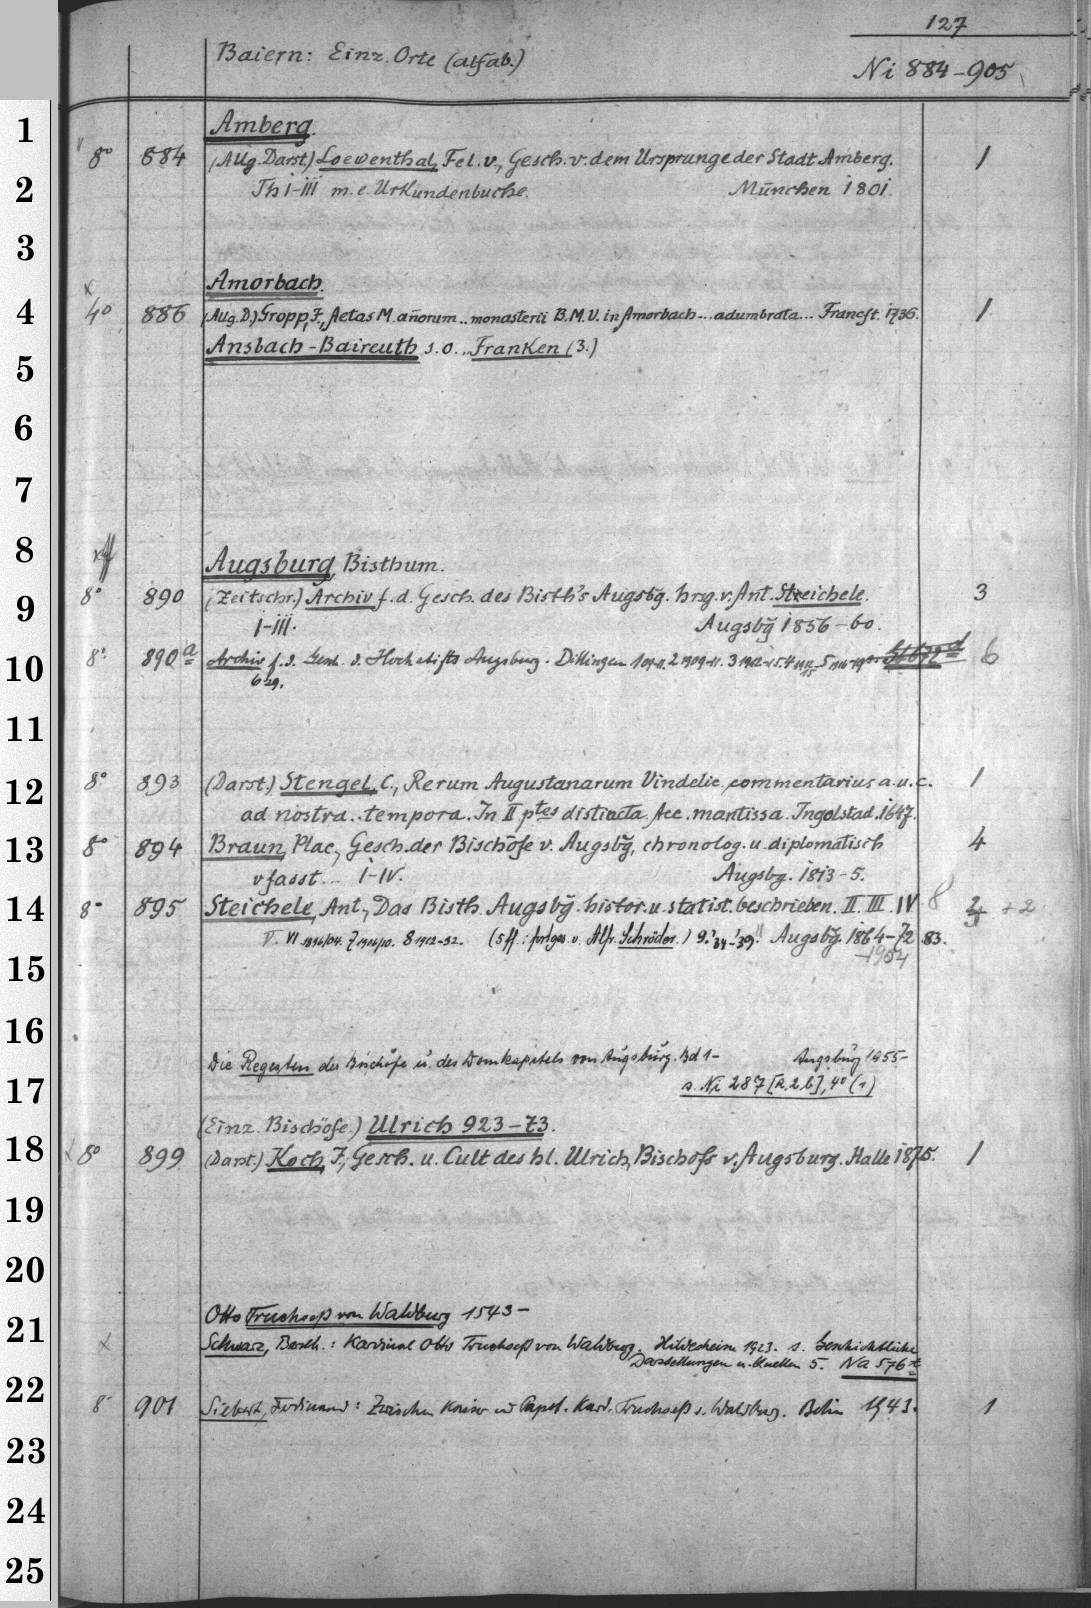 127
Baiern: Einz. Orte (alfab.)
Ni 884-905
1
Amberg.
8° 884 (Allg. Darst.) Loewenthal, Fel. v., Gesch. v. dem Ursprunge der Stadt Amberg. 1
2 Th I-III m. e. Urkundenbuche. München 1801.
3
Amorbach.
4 4° 886 (Allg. D.) Gropp, J., Aetas M. añorum .. monasterii B.M.V. in Amorbach ... adumbrata ... Francft. 1736. 1
Ansbach-Baireuth s. o. .. Franken (3.)
5
6
7
8
Augsburg, Bisthum.
9 8° 890 (Zeitschr.) Archiv f. d. Gesch. des Bisth's Augsbg. hrsg. v. Ant. Steichele. 3
I-III. Augsbg 1856-60.
10 8° 890a Archiv f. d. Gesch. d. Hochstifts Augsburg. Dillingen 6
6 29.
11
12 8° 893 (Darst.) Stengel, C., Rerum Augustanarum Vindelic. commentarius a. u. c. 1
ad nostra .. tempora. In II ptes distincta. Acc. mantissa. Ingolstad. 1647.
13 8° 894 Braun, Plac., Gesch. der Bischöfe v. Augsbg, chronolog. u. diplomatisch 4
vfasst ... I-IV. Augsbg. 1813-5.
14 8° 895 Steichele, Ant., Das Bisth. Augsbg. histor. u. statist. beschrieben. II. III. IV 8 +2
V. VI 1896/04. 7 1906/10. 8 1912-32. (5 ff.: fortges. v. Alfr. Schröder.) 9. '34-'39. Augsbg. 1864-72 83.
-1904
15
16
Die Regesten der Bischöfe u. des Domkapitels von Augsburg. Bd 1- Augsburg 1955-
17 s. Ni 287 [R, 2, b], 4° (1)
(Einz. Bischöfe.) Ulrich 923-73.
18 8° 899 (Darst.) Koch, J., Gesch. u. Cult des hl. Ulrich, Bischofs v. Augsburg. Halle 1875. 1
19
20
Otto Truchseß von Waldburg 1543-
21 Schwarz, Benth.: Kardinal Otto Truchseß von Waldburg. Hildesheim 1923. s. Geschichtliche
Darstellungen u. Quellen 5. Na 576t
22 8° 901 Siebert, Ferdinand: Zwischen Kaiser und Papst. Kard. Truchseß v. Waldburg. Berlin 1943. 1
23
24
25